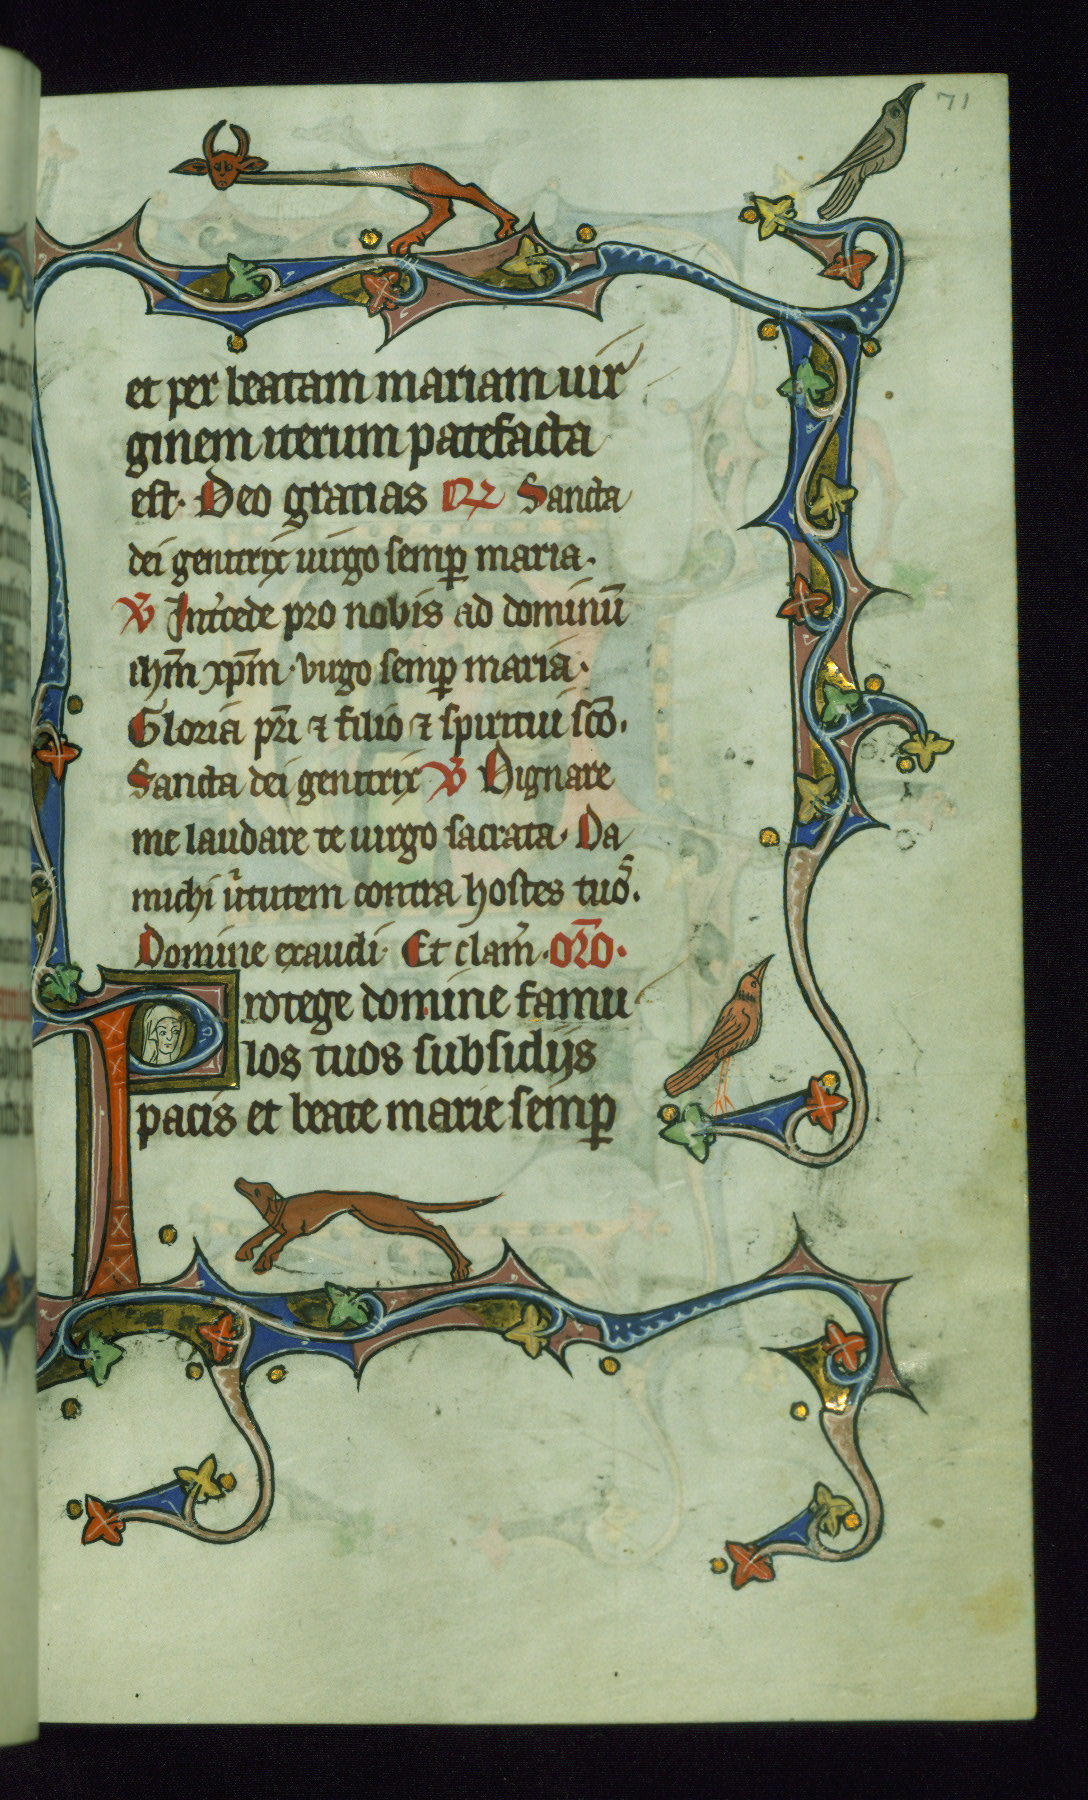 71
et per beatam mariam uir
ginem iterum patefacta
est. Deo gratias ℟ Sancta
dei genitrix uirgo semꝑ maria.
℣ Int'cede pro nobis ad dominū
ihm̄ xp̄m. virgo semꝑ maria.
Gloria pr̄i ⁊ filio ⁊ spiritui sc̄o.
Sancta dei genitrix ℣ Dignare
me laudare te uirgo sacrata. Da
michi u'tutem contra hostes tuoˢ.
Domine exaudi. Et clam̄. or̄o.
Protege domine famu
los tuos subsidijs
pacis et beate marie semꝑ